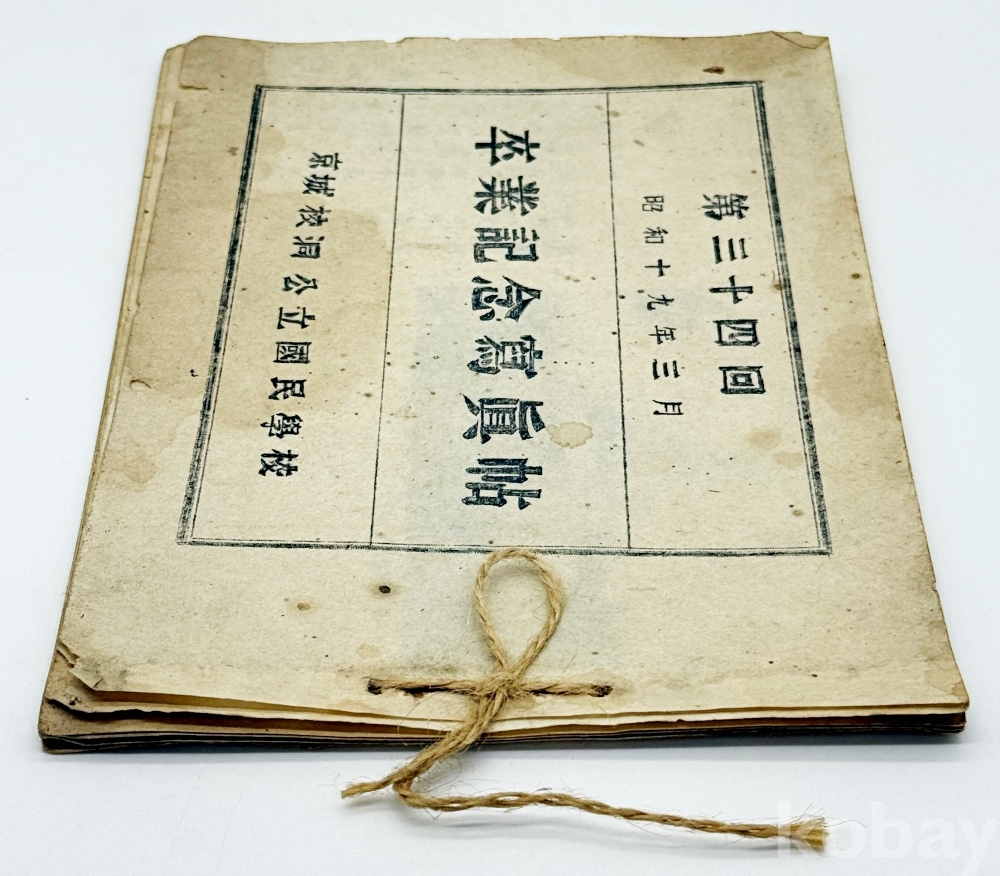 第三十四回
昭和十九年三月
卒業記念寫眞帖
京城校洞公立國民學校
kobay